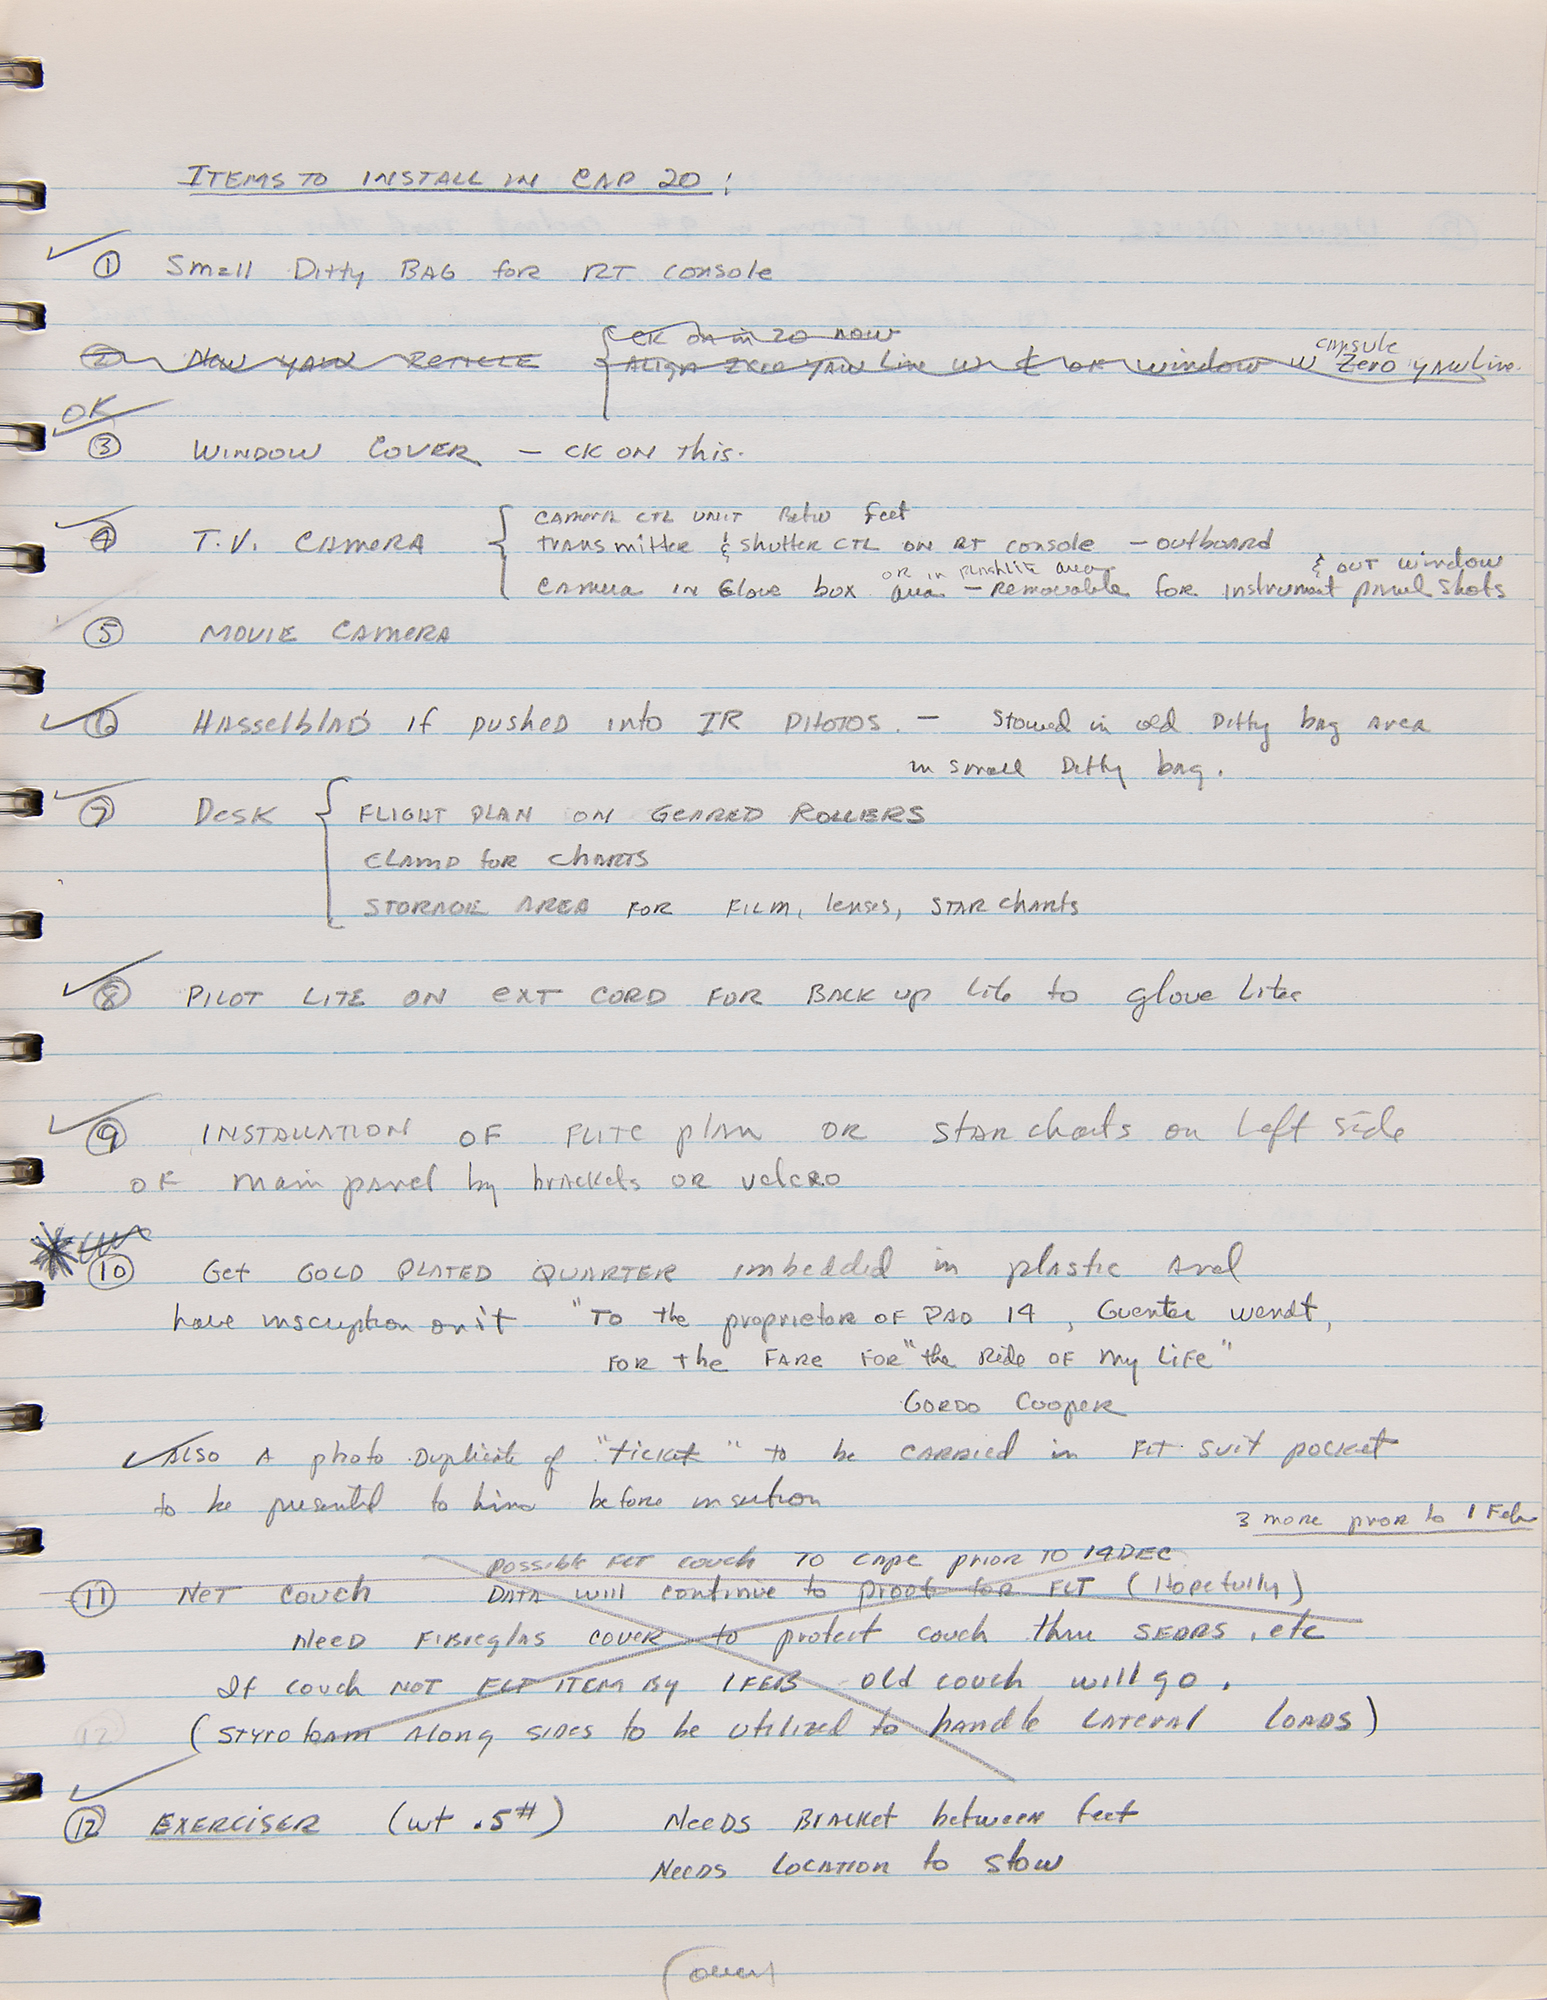 ITEMS TO INSTALL IN CAP 20:
① Small Ditty BAG for RT console
② New YAW RETICLE { CK ON in 20 now
ALIGN ZERO YAW Line w ℄ OF window w capsule Zero yaw Line.
OK
③ WINDOW COVER — CK ON this.
④ T.V. CAMERA { CAMERA CTL UNIT Betw feet
transmitter & shutter CTL ON RT console — outboard
CAMERA IN Glove box area OR in flashlite area — Removable for instrument panel shots & OUT window
⑤ MOVIE CAMERA
⑥ HASSelblAD if pushed into IR PHOTOS. — Stowed in old Ditty bag area
in small Ditty bag.
⑦ Desk { FLIGHT PLAN ON GEARED ROLLERS
CLAMP for CHARTS
STORAGE AREA FOR FILM, lenses, STAR charts
⑧ PILOT LITE ON EXT CORD FOR BACK up Lite to glove Lites
⑨ INSTALLATION OF FLITE plan OR STAR charts on Left side
OF main panel by brackets OR velcro
* ⑩ Get GOLD PLATED QUARTER imbedded in plastic and
have inscription on it "To the proprietor OF PAD 14, Guenter Wendt,
FOR the FARE FOR "the Ride OF My LIFE"
GORDO Cooper
Also A photo Duplicate of "ticket" to be CARRIED in FLT suit pocket
to be presented to him before insertion
3 more prior to 1 Feb
POSSIBLE FLT couch TO CAPE PRIOR TO 14 DEC
⑪ NET couch DATA will continue to proof for FLT (Hopefully)
Need Fibreglas cover to protect couch thru SEDRS, etc
If couch NOT FLT ITEM By 1 FEB old couch will go.
12 (STYROfoam Along sides to be utilized to handle LATERAL LOADS)
⑫ EXERCISER (wt .5#) NeeDS BRACKET between feet
Needs LOCATION to stow
(over)